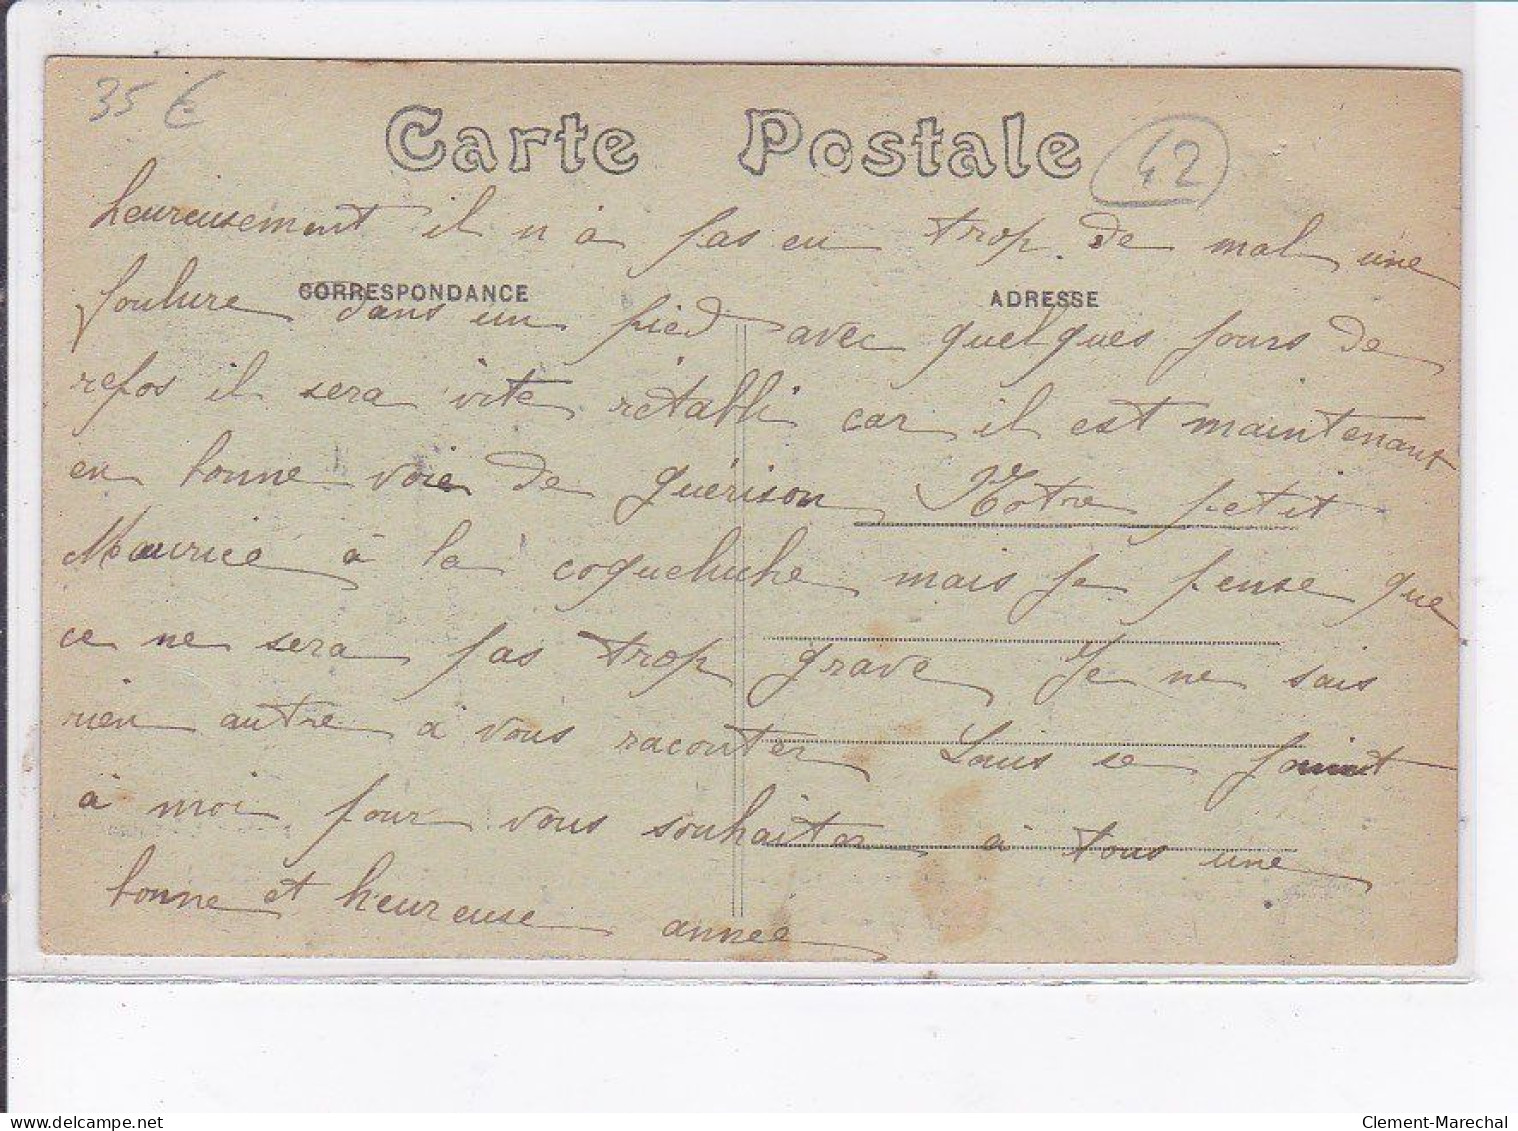 35 €
Carte Postale
42
heureusement il n'a pas eu trop de mal une
CORRESPONDANCE
ADRESSE
foulure dans un pied avec quelques jours de
repos il sera vite rétabli car il est maintenant
en bonne voie de guérison Notre petit
Maurice à la coqueluche mais je pense que
ce ne sera pas trop grave Je ne sais
rien autre à vous raconter Louis se joint
à moi pour vous souhaiter à tous une
bonne et heureuse année
delcampe.net
Clement-Marechal